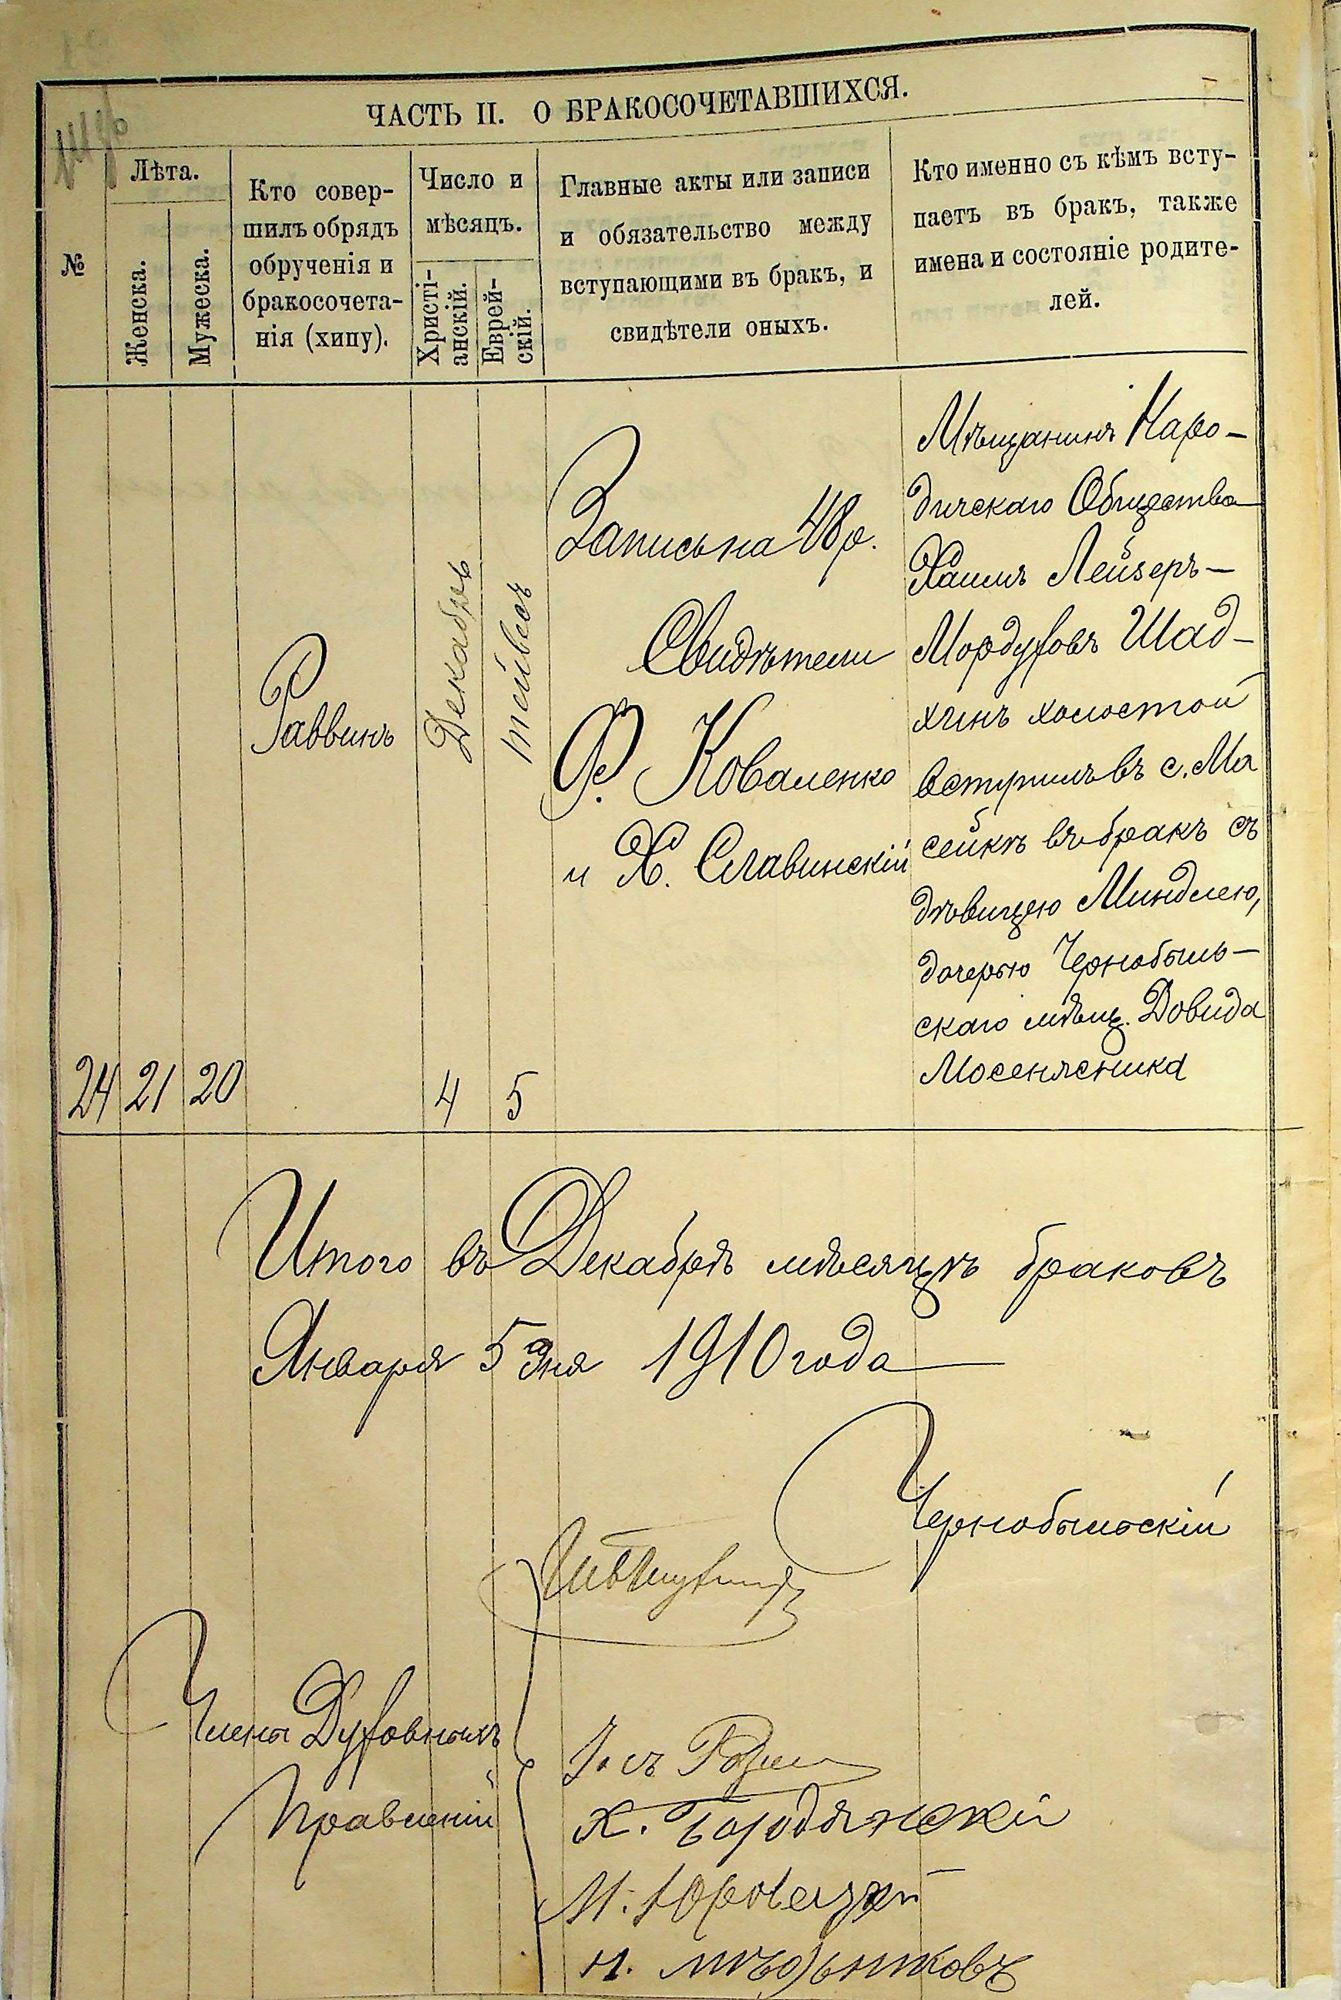 ЧАСТЬ II. О БРАКОСОЧЕТАВШИХСЯ.
№
Лѣта.
Женска.
Мужеска.
Кто совер-
шилъ обрядъ
обрученія и
бракосочета-
нія (хипу).
Число и
мѣсяцъ.
Христі-
анскій.
Еврей-
скій.
Главные акты или записи
и обязательство между
вступающими въ бракъ, и
свидѣтели оныхъ.
Кто именно съ кѣмъ всту-
паетъ въ бракъ, также
имена и состояніе родите-
лей.
24
21
20
Раввинъ
Декабрь
4
тейвесъ
5
Запись на 48 р.
Свидѣтели
Ф. Коваленко
и Х. Славинскій
Мѣщанинъ Наро-
дичскаго Общества
Хаимъ Лейзеръ-
Мордуховъ Шад-
хинъ холостой
вступилъ въ с. Ма
сейкѣ въ бракъ съ
дѣвицею Миндлею,
дочерью Чернобыль-
скаго мѣщ. Довида
Мосенясника
Итого въ Декабрѣ мѣсяцѣ браковъ
Января 5 дня 1910 года
Чернобыльскій
Члены Духовныхъ
Правленій
Х. Бородянскій
М. Юровецкій